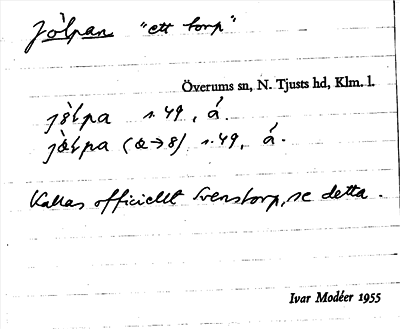 Jölpan "ett torp"
Överums sn, N. Tjusts hd, Klm. l.
s. 49, á.
(œ→8) s. 49, á.
Kallas officiellt Svenstorp, se detta.
Ivar Modéer 1955